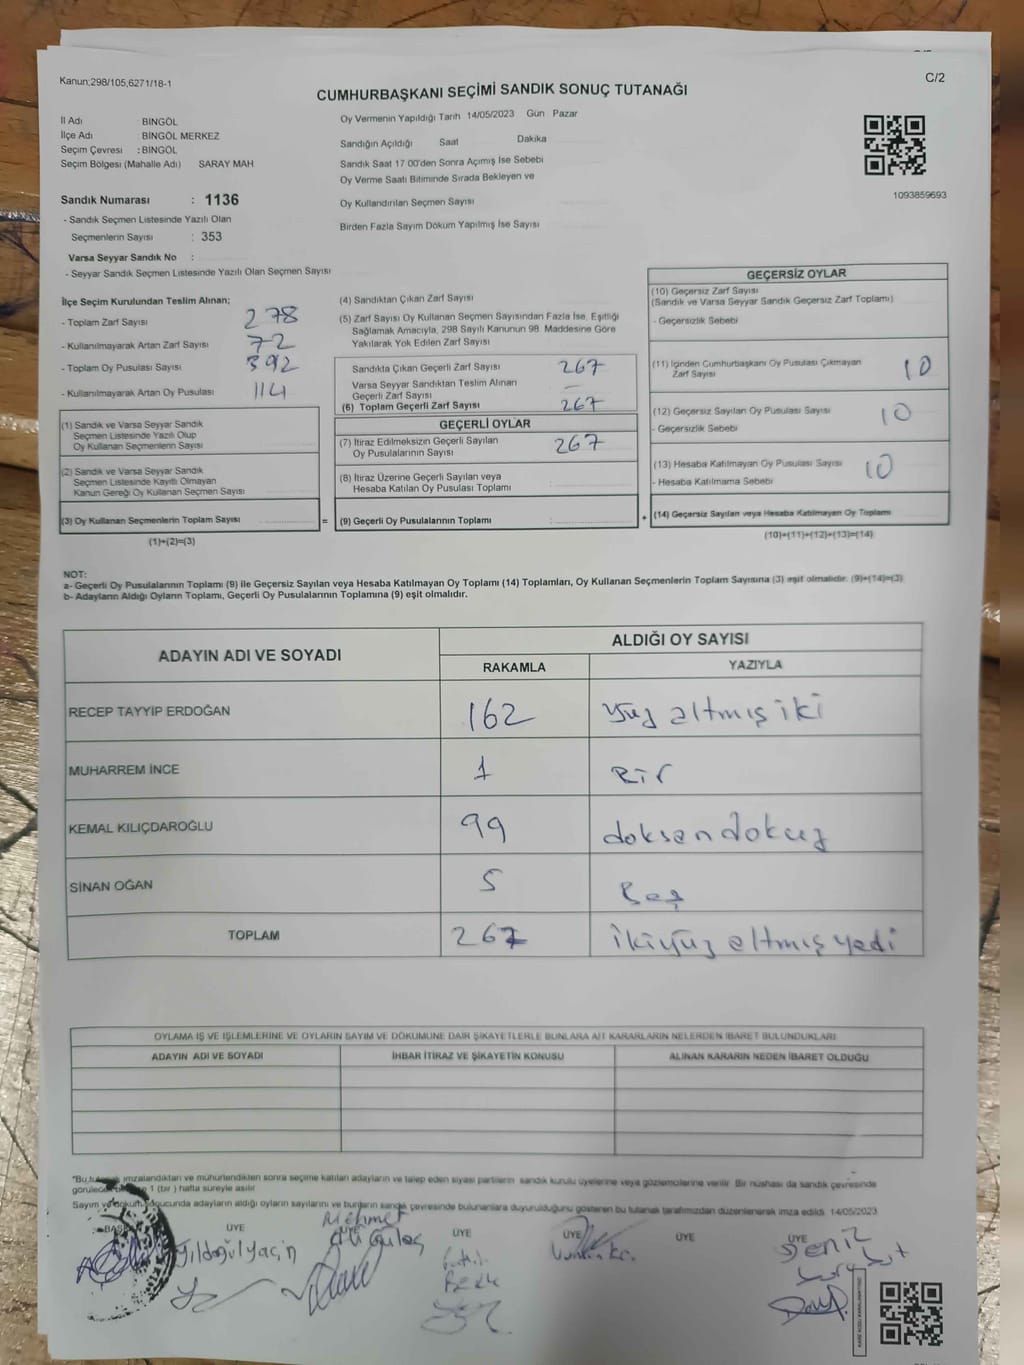 Kanun;298/105,6271/18-1
C/2
CUMHURBAŞKANI SEÇİMİ SANDIK SONUÇ TUTANAĞI
İl Adı : BİNGÖL
İlçe Adı : BİNGÖL MERKEZ
Seçim Çevresi : BİNGÖL
Seçim Bölgesi (Mahalle Adı) SARAY MAH
Sandık Numarası : 1136
- Sandık Seçmen Listesinde Yazılı Olan
Seçmenlerin Sayısı : 353
Varsa Seyyar Sandık No :
- Seyyar Sandık Seçmen Listesinde Yazılı Olan Seçmen Sayısı
Oy Vermenin Yapıldığı Tarih 14/05/2023 Gün Pazar
Sandığın Açıldığı Saat Dakika
Sandık Saat 17 00'den Sonra Açımış İse Sebebi
Oy Verme Saati Bitiminde Sırada Bekleyen ve
Oy Kullandırılan Seçmen Sayısı
Birden Fazla Sayım Döküm Yapılmış İse Sayısı
1093859693
İlçe Seçim Kurulundan Teslim Alınan;
- Toplam Zarf Sayısı 278
- Kullanılmayarak Artan Zarf Sayısı 72
- Toplam Oy Pusulası Sayısı 392
- Kullanılmayarak Artan Oy Pusulası 114
(1) Sandık ve Varsa Seyyar Sandık
Seçmen Listesinde Yazılı Olup
Oy Kullanan Seçmenlerin Sayısı
(2) Sandık ve Varsa Seyyar Sandık
Seçmen Listesinde Kayıtlı Olmayan
Kanun Gereği Oy Kullanan Seçmen Sayısı
(3) Oy Kullanan Seçmenlerin Toplam Sayısı
(1)+(2)=(3)
=
(4) Sandıktan Çıkan Zarf Sayısı
(5) Zarf Sayısı Oy Kullanan Seçmen Sayısından Fazla İse, Eşitliği
Sağlamak Amacıyla, 298 Sayılı Kanunun 98. Maddesine Göre
Yakılarak Yok Edilen Zarf Sayısı
Sandıkta Çıkan Geçerli Zarf Sayısı 267
Varsa Seyyar Sandıktan Teslim Alınan
Geçerli Zarf Sayısı –
(6) Toplam Geçerli Zarf Sayısı 267
GEÇERLİ OYLAR
(7) İtiraz Edilmeksizin Geçerli Sayılan
Oy Pusulalarının Sayısı 267
(8) İtiraz Üzerine Geçerli Sayılan veya
Hesaba Katılan Oy Pusulası Toplamı
(9) Geçerli Oy Pusulalarının Toplamı :
+
GEÇERSİZ OYLAR
(10) Geçersiz Zarf Sayısı
(Sandık ve Varsa Seyyar Sandık Geçersiz Zarf Toplamı)
- Geçersizlik Sebebi
(11) İçinden Cumhurbaşkanı Oy Pusulası Çıkmayan
Zarf Sayısı 10
(12) Geçersiz Sayılan Oy Pusulası Sayısı 10
- Geçersizlik Sebebi
(13) Hesaba Katılmayan Oy Pusulası Sayısı 10
- Hesaba Katılmama Sebebi
(14) Geçersiz Sayılan veya Hesaba Katılmayan Oy Toplamı
(10)+(11)+(12)+(13)=(14)
NOT:
a- Geçerli Oy Pusulalarının Toplamı (9) ile Geçersiz Sayılan veya Hesaba Katılmayan Oy Toplamı (14) Toplamları, Oy Kullanan Seçmenlerin Toplam Sayısına (3) eşit olmalıdır. (9)+(14)=(3)
b- Adayların Aldığı Oyların Toplamı, Geçerli Oy Pusulalarının Toplamına (9) eşit olmalıdır.
ADAYIN ADI VE SOYADI
ALDIĞI OY SAYISI
RAKAMLA YAZIYLA
RECEP TAYYİP ERDOĞAN 162 yüz altmış iki
MUHARREM İNCE 1 Bir
KEMAL KILIÇDAROĞLU 99 doksan dokuz
SİNAN OĞAN 5 Beş
TOPLAM 267 ikiyüz altmış yedi
OYLAMA İŞ VE İŞLEMLERİNE VE OYLARIN SAYIM VE DÖKÜMÜNE DAİR ŞİKAYETLERLE BUNLARA AİT KARARLARIN NELERDEN İBARET BULUNDUKLARI
ADAYIN ADI VE SOYADI İHBAR İTİRAZ VE ŞİKAYETİN KONUSU ALINAN KARARIN NEDEN İBARET OLDUĞU
imzalandıktan ve mühürlendikten sonra seçime katılan adayların ve talep eden siyasi partilerin sandık kurulu üyelerine veya gözlemcilerine verilir. Bir nüshası da sandık çevresinde
1 (bir ) hafta süreyle asılır
Sayım ve sonucunda adayların aldığı oyların sayılarını ve bunların sandık çevresinde bulunanlara duyurulduğunu gösteren bu tutanak tarafımızdan düzenlenerek imza edildi. 14/05/2023
BAŞKAN ÜYE ÜYE ÜYE ÜYE ÜYE ÜYE
Mehmet
Deniz